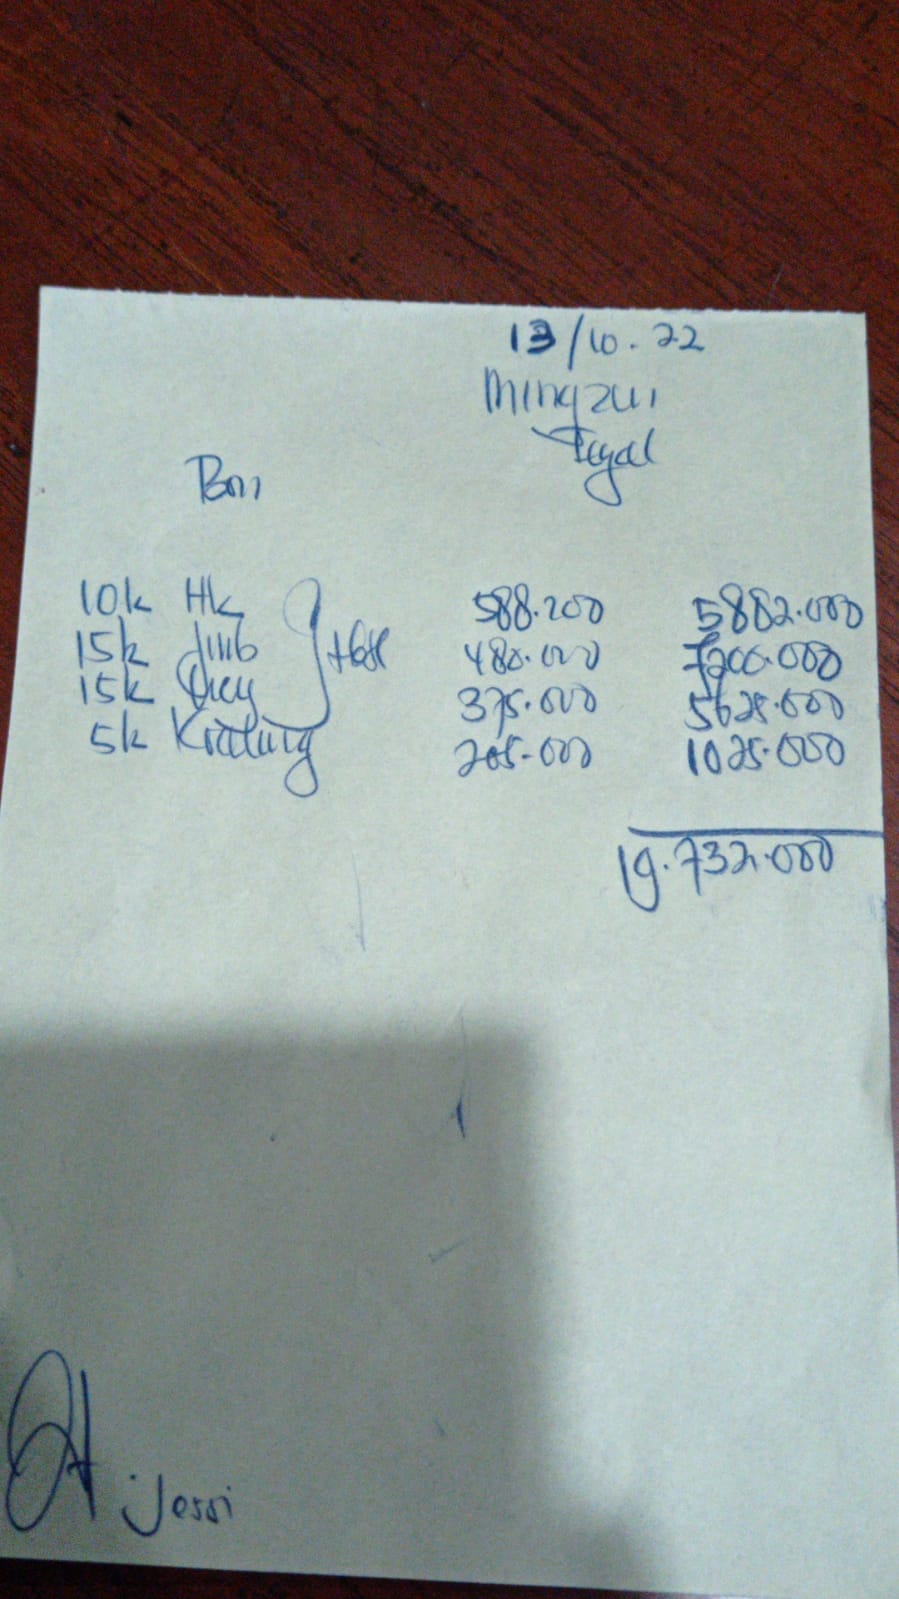 13/10.22
Mingzui
Tegal
Boni
10k Hk 588.200 5882.000
15k 480.000 7200.000
15k 375.000 5625.000
5k 205.000 1025.000
19.732.000
Jessi